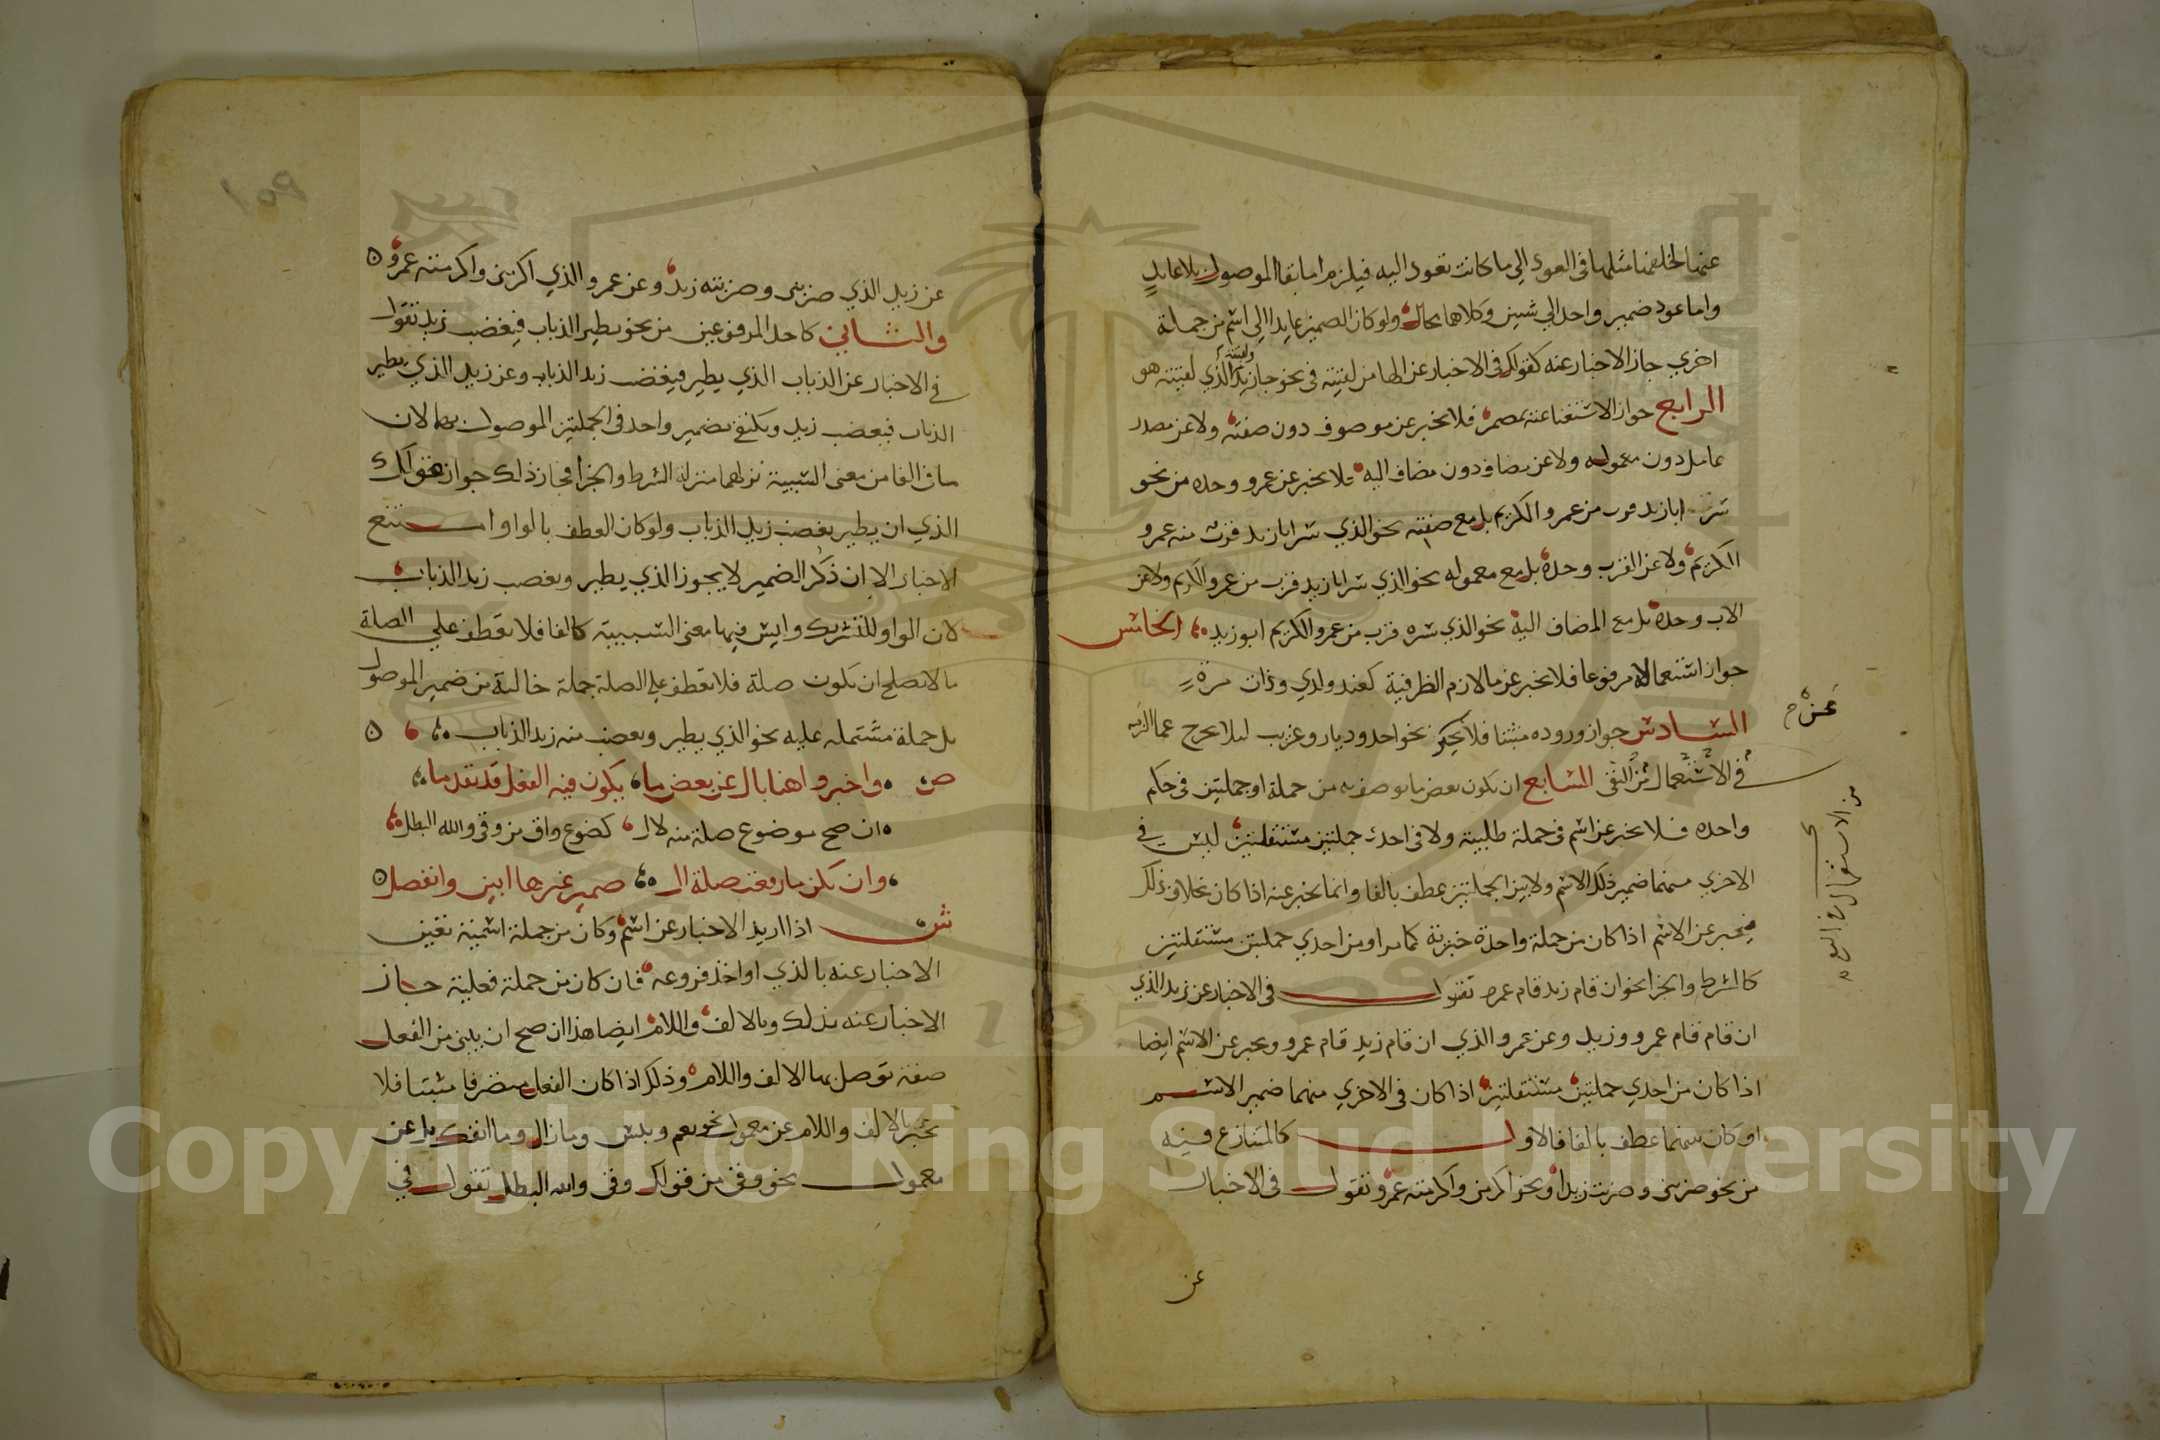 عنها لخلفها مثلها فى العود الي ما كانت تعود اليه فيلزم اما بقا الموصول بلا عايدٍ
واما عود ضمير واحد الي شيين وكلاهما محال ولو كان الضمير عايدا الي اسم من جملة
اخري جاز الاخبار عنه كقولك فى الاخبار عن الها من لقيته فى نحو جا زيد ولقيته الذي لقيته هو
الرابع جواز الاستغنا عنه بمضمر فلا يخبر عن موصوف دون صفته ولا عن مصدر
عامل دون معموله ولا عن مضاف دون مضاف اليه فلا يخبر عن عمرو وحده من نحو
سر ابا زيد قرب من عمرو الكريم بل مع صفته نحو الذي سر ابا زيد قرب منه عمرو
الكريم ولا عن القرب وحده بل مع معموله نحو الذي سر ابا زيد قرب من عمرو الكريم ولا عن
الاب وحده بل مع المضاف اليه نحو الذي سره قرب من عمرو الكريم ابو زيد الخامس
جواز استعماله مرفوعا فلا يخبر عن ما لازم الظرفية كعند ولدي وذات مرةٍ
السادس جواز وروده مثبتا فلا يخبر نحو احد وديار وعريب ليلا يخرج عما الزمه
فى الاستعمال من النفى السابع ان يكون بعض ما يوصف به من جملة او جملتين فى حكم
واحده فلا يخبر عن اسم فى جملة طلبية ولا فى احدى جملتين مستقلتين ليس في
الاخري منهما ضمير ذلك الاسم ولا بين الجملتين عطف بالفا وانما يخبر عنه اذا كان بخلاف ذلك
فيخبر عن الاسم اذا كان من جملة واحدة خبرية كما مر او من احدي جملتين مستقلتين
كالشرط والجزا نحو ان قام زيد قام عمرو تقول فى الاخبار عن زيد الذي
ان قام قام عمرو وزيد وعن عمرو الذي ان قام زيد قام عمرو ويخبر عن الاسم ايضا
اذا كان من احدي جملتين مستقلتين اذا كان فى الاخري منهما ضمير الاسم
او كان بينهما عطف بالفا فالاول كالمتنازع فيه
من نحو ضربنى وضربت زيدا ونحو اكرمنى واكرمته عمرو تقول فى الاخبار
عن
عن
من الاستعمال فى
عن زيد الذي ضربنى وضربته زيد وعن عمرو الذي اكرمنى واكرمته عمرو
والثاني كاحد المرفوعين من نحو يطير الذباب فيغضب زيد تقول
فى الاخبار عن الذباب الذي يطير فيغضب زيد الذباب وعن زيد الذي يطير
الذباب فيغضب زيد ويكتفى بضمير واحد فى الجملتين الموصول بهما لان
ما فى الفا من معنى السببية نزلهما منزلة الشرط والجزا فجاز ذلك جواز قولك
الذي ان يطير يغضب زيد الذباب ولو كان العطف بالواو امتنع
الاخبار الا ان ذكر الضمير لا يجوز الذي يطير ويغضب زيد الذباب
لان الواو للتشريك وليس فيها معنى السببية كالفا فلا تعطف علي الصلة
ما لا يصلح ان يكون صلة فلا يعطف علي الصلة جملة خالية من ضمير الموصول
بل جملة مشتملة عليه نحو الذي يطير ويغضب منه زيد الذباب
ص واخبروا هنا بال عن بعض ما يكون فيه الفعل قد تقدما
ان صح موضوع صلة منه لال كصوغ واق من وقى والله البطل
وان يكن ما رفعت صلة ال ضمير غيرها ابين وانفصل
ش اذا اريد الاخبار عن اسم وكان من جملة اسمية تعين
الاخبار عنه بالذي او احد فروعه فان كان من جملة فعلية جاز
الاخبار عنه بذلك وبالالف واللام ايضا هذا ان صح ان يبنى من الفعل
صفة توصل بها الالف واللام وذلك اذا كان الفعل متصرفا مثبتا فلا
يخبر بالالف واللام عن معمول نحو نعم وبئس وما زال وما انفك بل عن
معمول نحو وقى من قولك وقى والله البطل تقول في
Copyright © King Saud University
1957